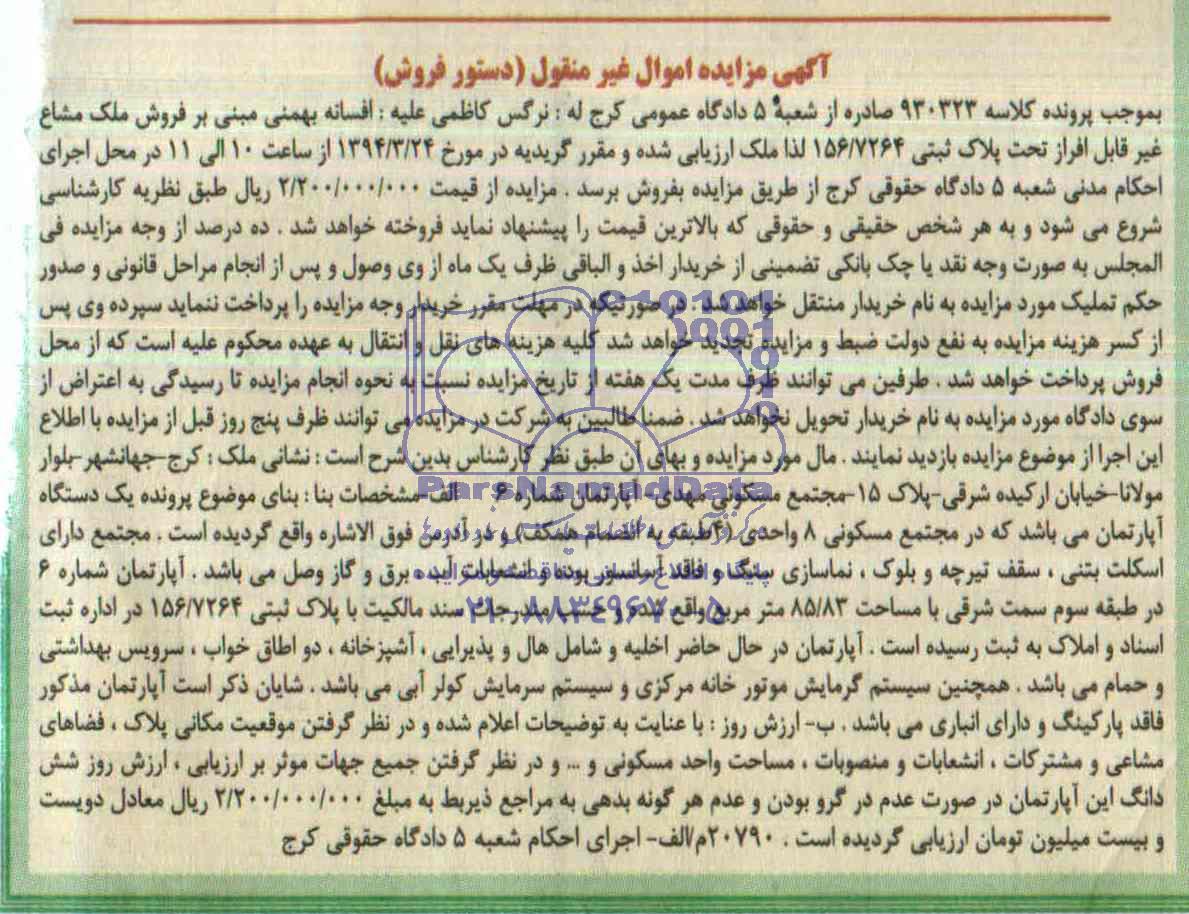 آگهی مزایده اموال غیر منقول (دستور فروش)
بموجب پرونده کلاسه ۹۳۰۳۲۳ صادره از شعبه ۵ دادگاه عمومی کرج له : نرگس کاظمی علیه : افسانه بهمنی مبنی بر فروش ملک مشاع
غیر قابل افراز تحت پلاک ثبتی ۱۵۶/۷۲۶۴ لذا ملک ارزیابی شده و مقرر گریدیه در مورخ ۱۳۹۴/۳/۲۴ از ساعت ۱۰ الی ۱۱ در محل اجرای
احکام مدنی شعبه ۵ دادگاه حقوقی کرج از طریق مزایده بفروش برسد . مزایده از قیمت ۲/۲۰۰/۰۰۰/۰۰۰ ریال طبق نظریه کارشناسی
شروع می شود و به هر شخص حقیقی و حقوقی که بالاترین قیمت را پیشنهاد نماید فروخته خواهد شد . ده درصد از وجه مزایده فی
المجلس به صورت وجه نقد یا چک بانکی تضمینی از خریدار اخذ و الباقی ظرف یک ماه از وی وصول و پس از انجام مراحل قانونی و صدور
حکم تملیک مورد مزایده به نام خریدار منتقل خواهد شد . در صورتیکه در مهلت مقرر خریدار وجه مزایده را پرداخت ننماید سپرده وی پس
از کسر هزینه مزایده به نفع دولت ضبط و مزایده تجدید خواهد شد کلیه هزینه های نقل و انتقال به عهده محکوم علیه است که از محل
فروش پرداخت خواهد شد . طرفین می توانند ظرف مدت یک هفته از تاریخ مزایده نسبت به نحوه انجام مزایده تا رسیدگی به اعتراض از
سوی دادگاه مورد مزایده به نام خریدار تحویل نخواهد شد . ضمنا طالبین به شرکت در مزایده می توانند ظرف پنج روز قبل از مزایده با اطلاع
این اجرا از موضوع مزایده بازدید نمایند . مال مورد مزایده و بهای آن طبق نظر کارشناس بدین شرح است : نشانی ملک : کرج-جهانشهر-بلوار
مولانا-خیابان ارکیده شرقی-پلاک ۱۵-مجتمع مسکونی مهدی - آپارتمان شماره ۶ الف-مشخصات بنا : بنای موضوع پرونده یک دستگاه
آپارتمان می باشد که در مجتمع مسکونی ۸ واحدی (۴طبقه به انضمام همکف) و در آدرس فوق الاشاره واقع گردیده است . مجتمع دارای
اسکلت بتنی ، سقف تیرچه و بلوک ، نماسازی سنگ و فاقد آسانسور بوده و انشعابات آب ، برق و گاز وصل می باشد . آپارتمان شماره ۶
در طبقه سوم سمت شرقی با مساحت ۸۵/۸۳ متر مربع واقع شده و حسب مندرجات سند مالکیت با پلاک ثبتی ۱۵۶/۷۲۶۴ در اداره ثبت
اسناد و املاک به ثبت رسیده است . آپارتمان در حال حاضر اخلیه و شامل هال و پذیرایی ، آشپزخانه ، دو اطاق خواب ، سرویس بهداشتی
و حمام می باشد . همچنین سیستم گرمایش موتور خانه مرکزی و سیستم سرمایش کولر آبی می باشد . شایان ذکر است آپارتمان مذکور
فاقد پارکینگ و دارای انباری می باشد . ب- ارزش روز : با عنایت به توضیحات اعلام شده و در نظر گرفتن موقعیت مکانی پلاک ، فضاهای
مشاعی و مشترکات ، انشعابات و منصوبات ، مساحت واحد مسکونی و ... و در نظر گرفتن جمیع جهات موثر بر ارزیابی ، ارزش روز شش
دانگ این آپارتمان در صورت عدم در گرو بودن و عدم هر گونه بدهی به مراجع ذیربط به مبلغ ۲/۲۰۰/۰۰۰/۰۰۰ ریال معادل دویست
و بیست میلیون تومان ارزیابی گردیده است . ۲۰۷۹۰م/الف- اجرای احکام شعبه ۵ دادگاه حقوقی کرج
ParsNamadData
۰۲۱-۸۸۳۴۹۶۷۰-۵